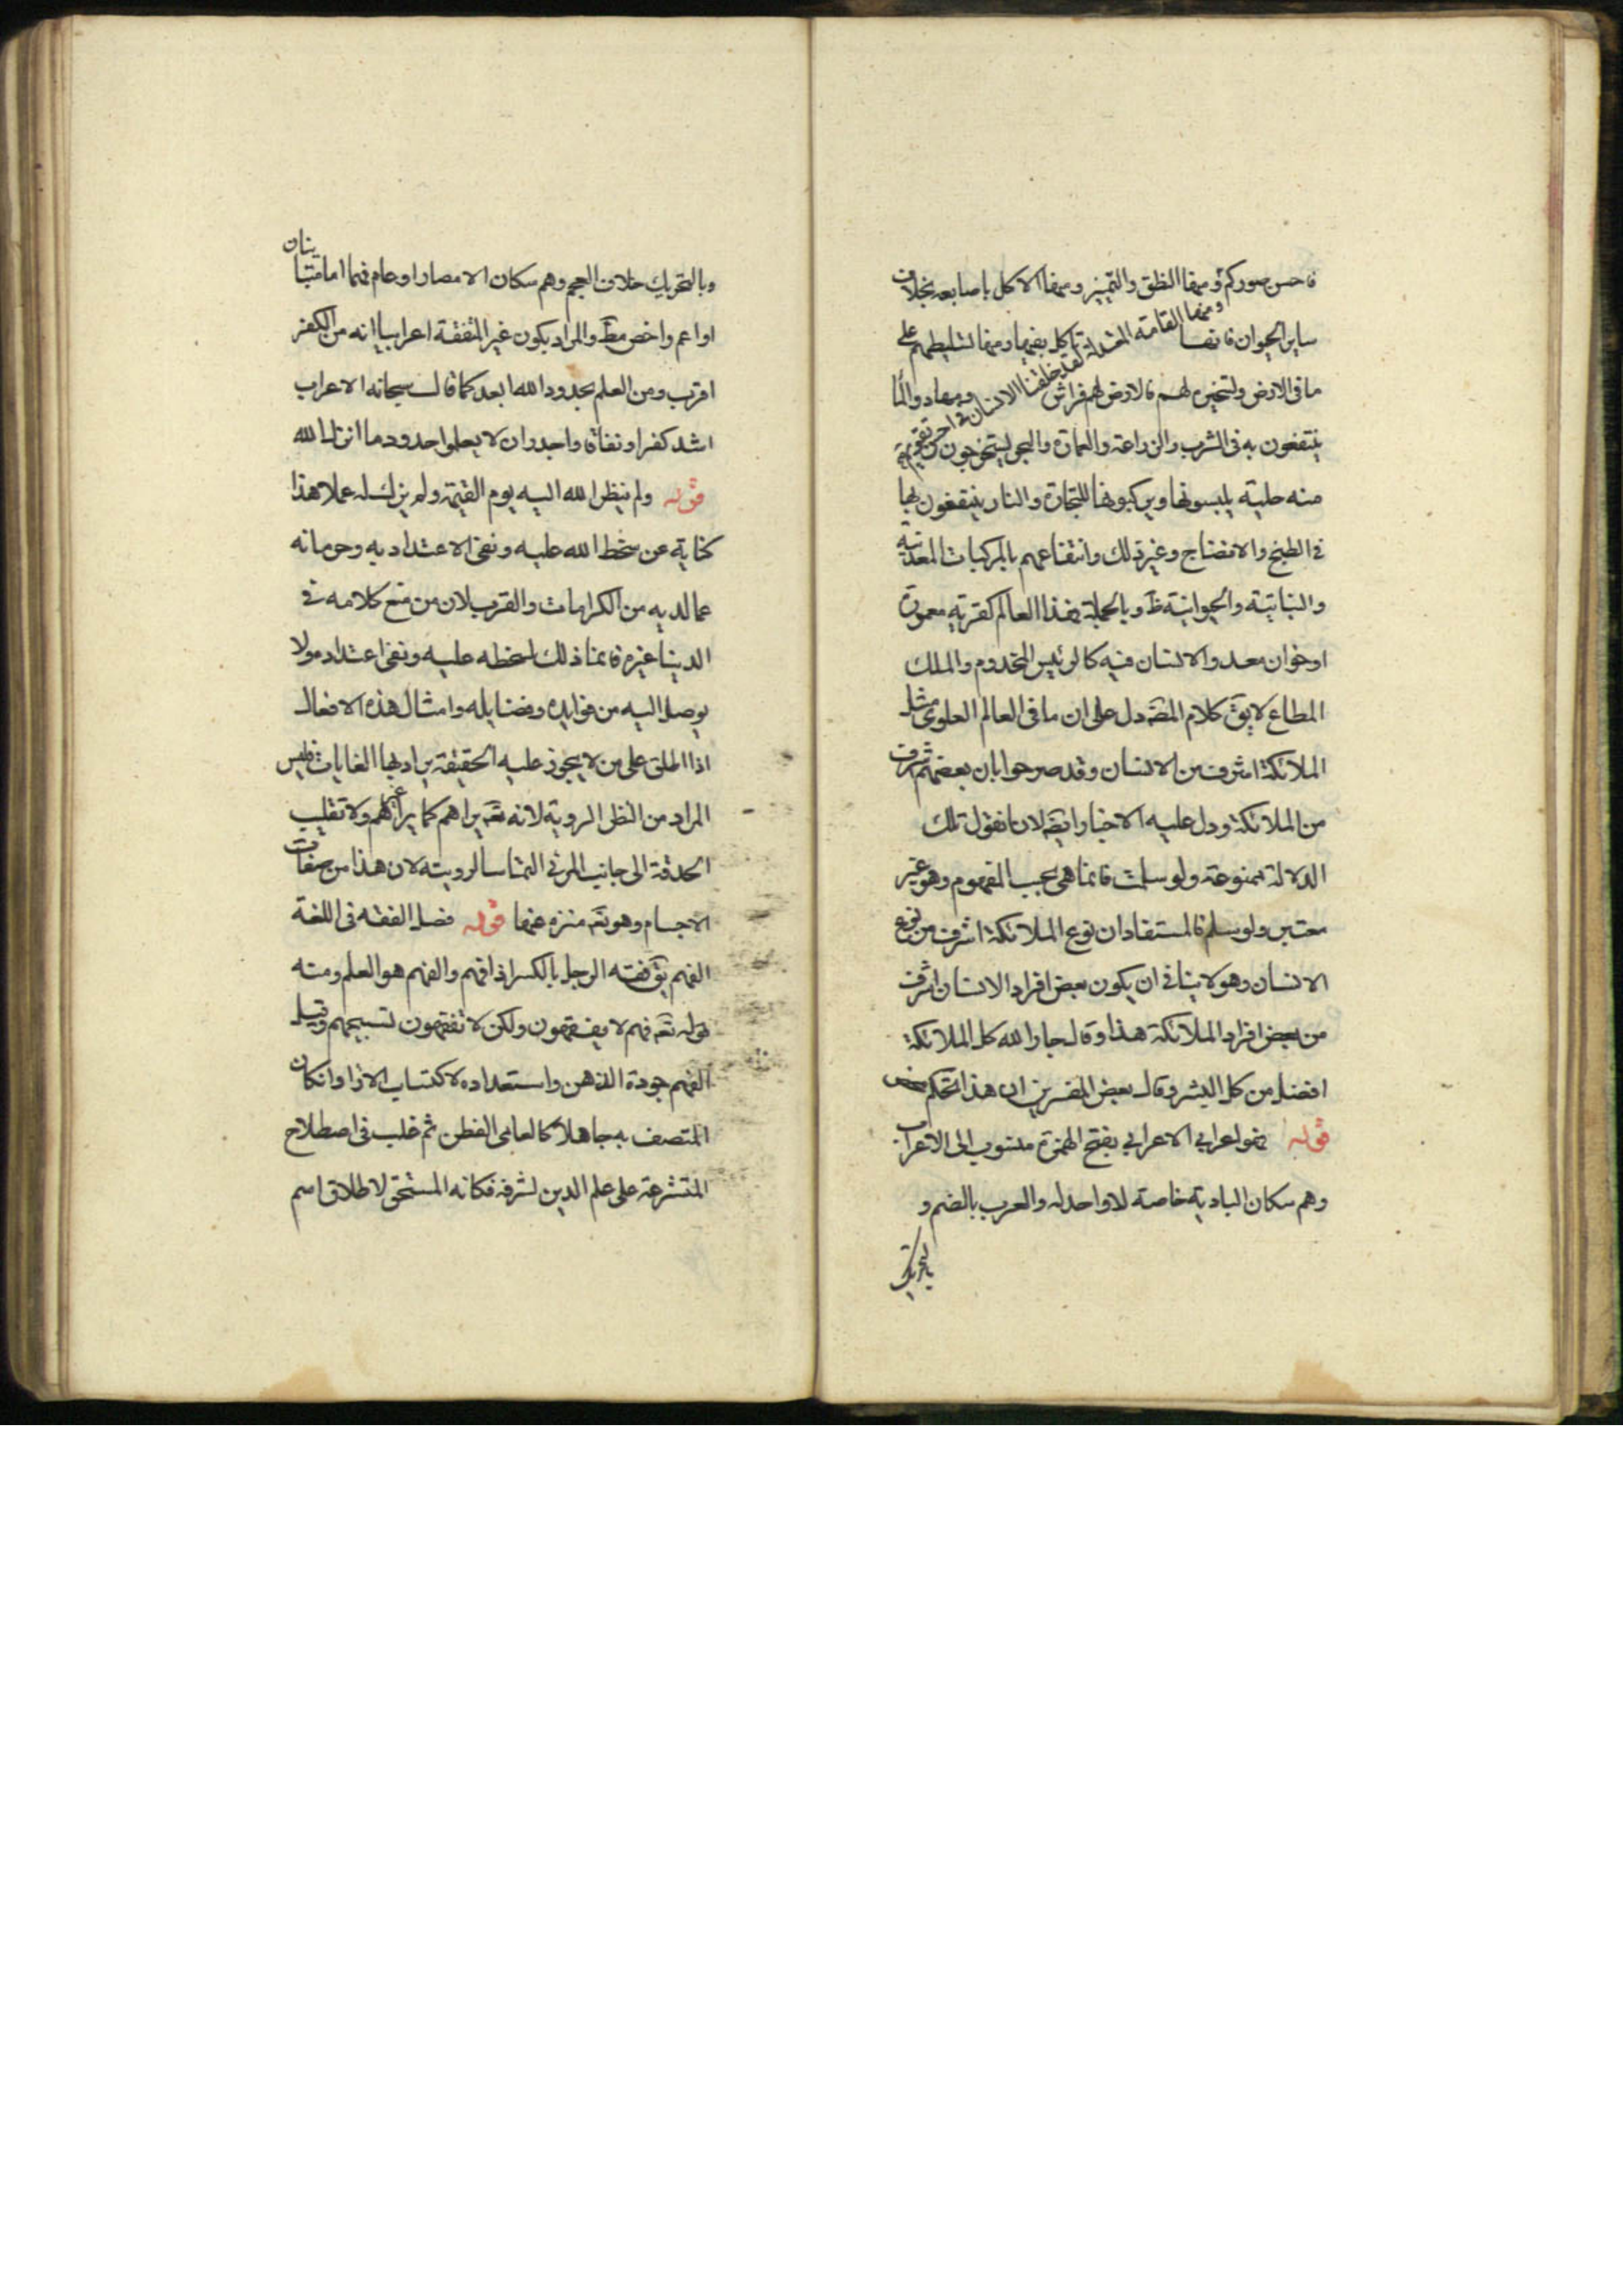 فاحسن صوركم ومنها النطق والتميز ومنها الاكل باصابعه بخلاف
ساير الحيوان فانها تاكل بفيها ومنها تسليطهم على
ومنها القامة المعتدلة لقد خلقنا الانسان في احسن تقويم
ما في الارض وتسخيره لهم فالارض لهم فراش ومهاد والما
ينتفعون به في الشرب والزراعة والعمارة والبحر ليستخرجون
منه حلية يلبسونها ويركبونها للتجارة والنار ينتفعون بها
في الطبخ والانضاج وغير ذلك وانتفاعهم بالمركبات المعدنية
والنباتية والحيوانية ظ وبالجملة فهذا العالم كقرية معمورة
او خوان معد والانسان فيه كالرئيس المخدوم والملك
المطاع لا يق كلام المصه دل على ان ما في العالم العلوي مثل
الملائكة اشرف من الانسان وقد صرحوا بان بعضهم اشرف
من الملائكة ودل عليه الاخبار ايضه لانا نقول تلك
الدلالة ممنوعة ولو سلمت فانما هي بحسب المفهوم وهو غير
معتبر ولو سلم فالمستفاد ان نوع الملائكة اشرف من نوع
الانسان وهو لا ينافي ان يكون بعض افراد الانسان اشرف
من بعض افراد الملائكة هذا وقال جار الله كل الملائكة
افضل من كل البشر وقال بعض المفسرين ان هذا التحكم محض
قوله فهو اعرابي الاعرابي بفتح الهمزة منسوب الى الاعراب
وهم سكان البادية خاصة لا واحد له والعرب بالضم و
بالتحريك
وبالتحريك خلاف العجم وهم سكان الامصار او عام فهما اما متباينان
او اعم واخص مط والمراد بكون غير المتفقه اعرابيا انه من الكفر
اقرب ومن العلم بحدود الله ابعد كما قال سبحانه الاعراب
اشد كفرا ونفاقا واجدر ان لا يعلموا حدود ما انزل الله
قوله ولم ينظر الله اليه يوم القيمة ولم يزك له عملا هذا
كناية عن سخط الله عليه ونفى الاعتداد به وحرمانه
عما لديه من الكرامات والقرب لان من منع كلامه في
الدنيا غيره فانما ذلك لسخطه عليه ونفى اعتداده ولا
يوصل اليه من فوايده وفضايله وامثال هذه الافعال
اذا اطلق على من لا يجوز عليه الحقيقة يراد بها الغايات فليس
المراد من النظر الروية لانه تعه يراهم كما يرى غيرهم ولا تقليب
الحدقة الى جانب المرئي التماسا لرويته لان هذا من صفات
الاجسام وهو تعه منزه عنها قوله فضل الفقه في اللغة
الفهم يق فقه الرجل بالكسر اذا فهم والفهم هو العلم ومنه
قوله تعه فهم لا يفقهون ولكن لا تفقهون تسبيحهم وقيل
الفهم جودة الذهن واستعداده لاكتساب الارا وان كان
المتصف به جاهلا كالعامى الفطن ثم غلب في اصطلاح
المتشرعة على علم الدين لشرفه فكانه المستحق لاطلاق اسم